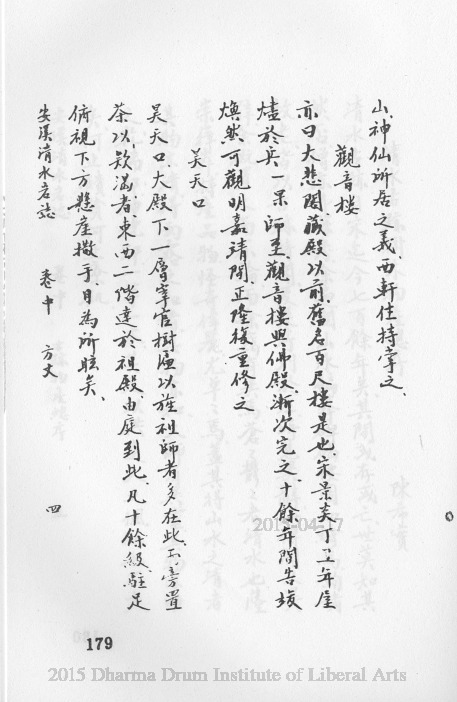 山、神仙所居之義、西軒住持掌之、
觀音樓
亦曰大悲閣、藏殿以前、舊名百尺樓是也、宋景炎丁丑年屋
燼於兵、一杲師至、觀音樓與佛殿、漸次完之、十餘年間告竣
煥然可觀、明嘉靖間、正隆復重修之
昊天口
昊天口、大殿下一層、宰官樹匾以旌祖師者多在此、旁置
茶以飲渴者、東西二階達於祖殿、由庭到此、凡十餘級、駐足
俯視下方、懸崖撒手、目為所眩矣、
安溪清水岩誌 卷中 方丈 四
179
2015-04-17
2015 Dharma Drum Institute of Liberal Arts